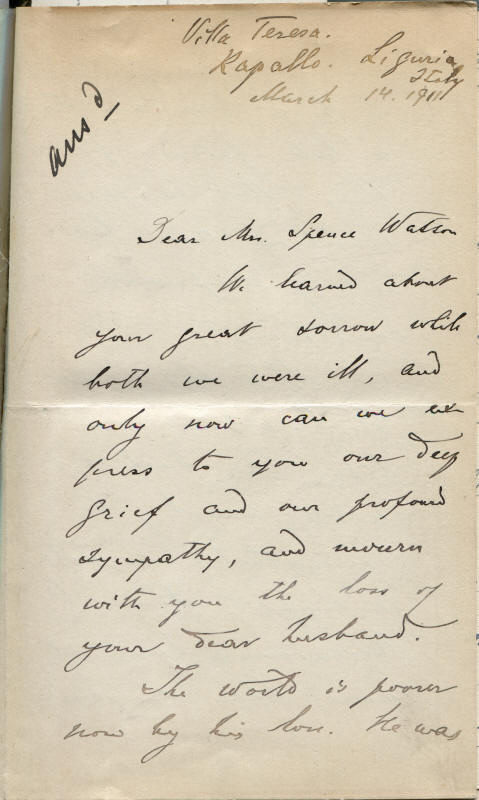 Villa Teresa.
Rapallo. Liguria
Italy
March 14. 1911
ans d
Dear Mrs. Spence Watson
We learned about
your great sorrow while
both we were ill, and
only now can we ex
press to you our deep
grief and our profound
sympathy, and mourn
with you the loss of
your dear husband.
The world is poorer
now by his loss. He was